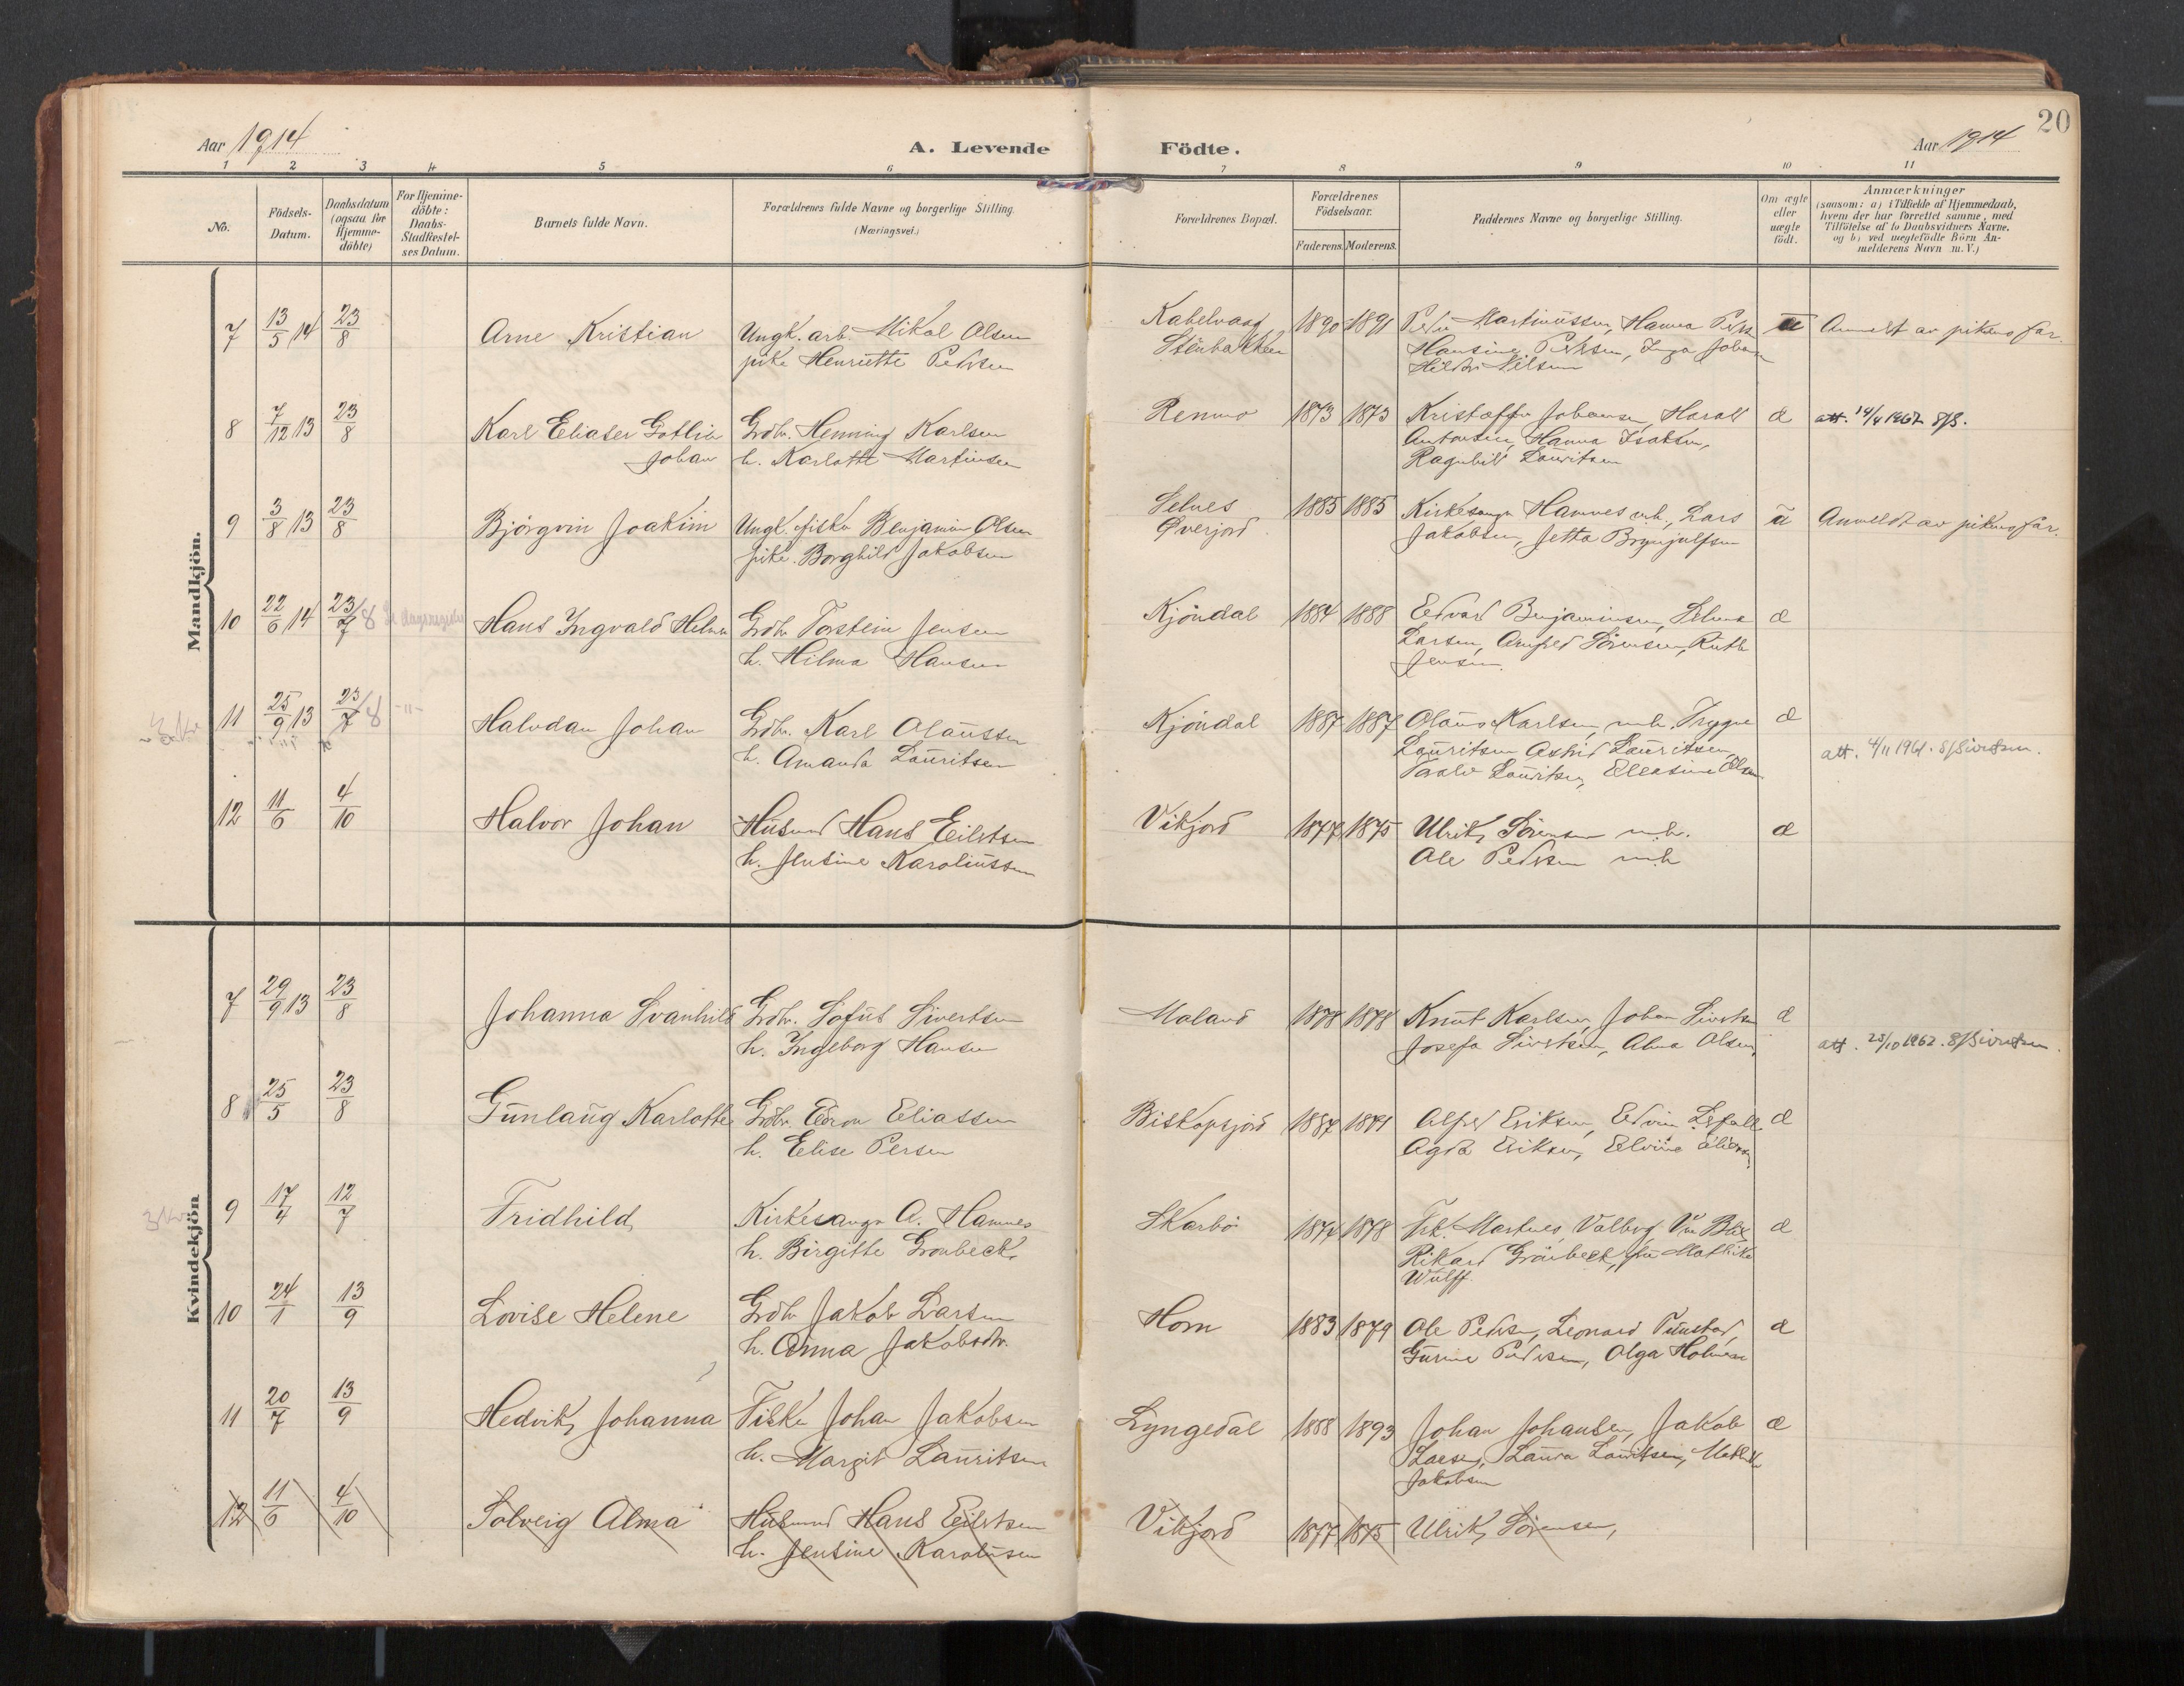 20
Aar 1914
A. Levende
Födte.
Aar 1914
1 2 3 4 5 6 7 8 9 10 11
No.
Födsels-
Datum.
Daabsdatum
(ogsaa for
Hjemme-
döbte)
For Hjemme-
döbte:
Daabs-
Stadfæstel-
ses Datum.
Barnets fulde Navn.
Forældrenes fulde Navne og borgerlige Stilling.
(Næringsvei.)
Forældrenes Bopæl.
Forældrenes
Födselsaar.
Faderens. Moderens.
Faddernes Navne og borgerlige Stilling.
Om ægte
eller
uægte
födt.
Anmærkninger
(saasom: a) i Tilfælde af Hjemmedaab,
hvem der har forrettet samme, med
Tilföielse af to Daabsvidners Navne,
og b) ved uægtefödte Börn An-
melderens Navn m. V.)
Mandkjön.
7 13/5 14 23/8 Arne Kristian Ungk. arb. Mikal Olsen Kabelvaag 1890 1891 Peder Martinussen, Hanna Peders. u Anmeldt av pikens far.
pike Henriette Pedersen Stenbakken Hansine Pedersen, Inga Johan
Nilsen
8 7/12 13 23/8 Karl Eliaser Gotlieb Grdbr. Henning Karlsen Renmo 1873 1873 Kristoffer Johansen, Harald æ att. 14/4 1962 S/S.
Johan h. Karlotte Martinsen Antonsen, Hanna Isaksen,
Ragnhild Lauritsen
9 3/8 13 23/8 Björgvin Joakim Ungk. fisker Benjamin Olsen Selnes 1885 1885 Kirkesanger Hamnes m.h., Lars u Anmeldt av pikens far.
pike Borghild Jakobsen Øverjord Jakobsen, Jetta Brynjulfsen
10 22/6 14 23/7 8 Hans Ingvald Helmer Grdbr Torstein Jensen Kjöndal 1884 1888 Edvard Benjaminsen, Selma æ
h. Hilma Hansen Larsen, Arnfred Sörensen, Ruth
Jensen.
11 25/9 13 23/7 8 -"- Halvdan Johan Grdbr. Karl Olaussen Kjöndal 1887 1887 Olaus Karlsen m.h. Trygve æ
h. Amanda Lauritsen Lauritsen Astrid Lauritsen, att. 4/11 1961. S/Sivertsen.
Lauritsen, Eleasine Olsen
12 11/6 4/10 Halvor Johan Husmd Hans Eilertsen Vikjord 1877 1875 Ulrik Sörensen m.h. æ
h. Jensine Karoliussen Ole Pedersen m.h
Kvindekjön
7 29/9 13 23/8 Johanna Svanhild Grdbr. Sofus Sivertsen Maland 1878 1878 Knut Karlsen, Johan Sivertsen æ
h. Ingeborg Hansen Josefa Sivertsen, Alma Olsen, att. 25/10 1962. S/Sivertsen.
8 25/5 23/8 Gunlaug Karlotte Grdbr. Edron Eliassen Biskopsjord 1887 1891 Alfred Eriksen, Edvin æ
h. Elise Persen Agda Eriksen, Elvine
9 17/4 12/7 Fridhild Kirkesanger A. Hamnes Skarbö 1874 1878 Frk. Martnes, Valborg Bl æ
h. Birgitte Grönbeck Rikard Grönbeck, fru Mathilde
Wulff.
10 24/1 13/9 Lovise Helene Grdbr Jakob Larsen Horn 1883 1879 Ole Pedersen, Leonard Finstad, æ
h. Anna Jakobsdtr. Gurine Pedersen, Olga Holmen
11 20/7 13/9 Hedvik Johanna Fisker Johan Jakobsen Lyngedal 1888 1893 Johan Johansen, Jakob æ
h. Margit Lauritsen Larsen, Laura Lauritsen,
Jakobsen
12 11/6 4/10 Solveig Alma Husmd Hans Eilertsen Vikjord 1877 1875 Ulrik Sörensen,
h. Jensine Karolusen